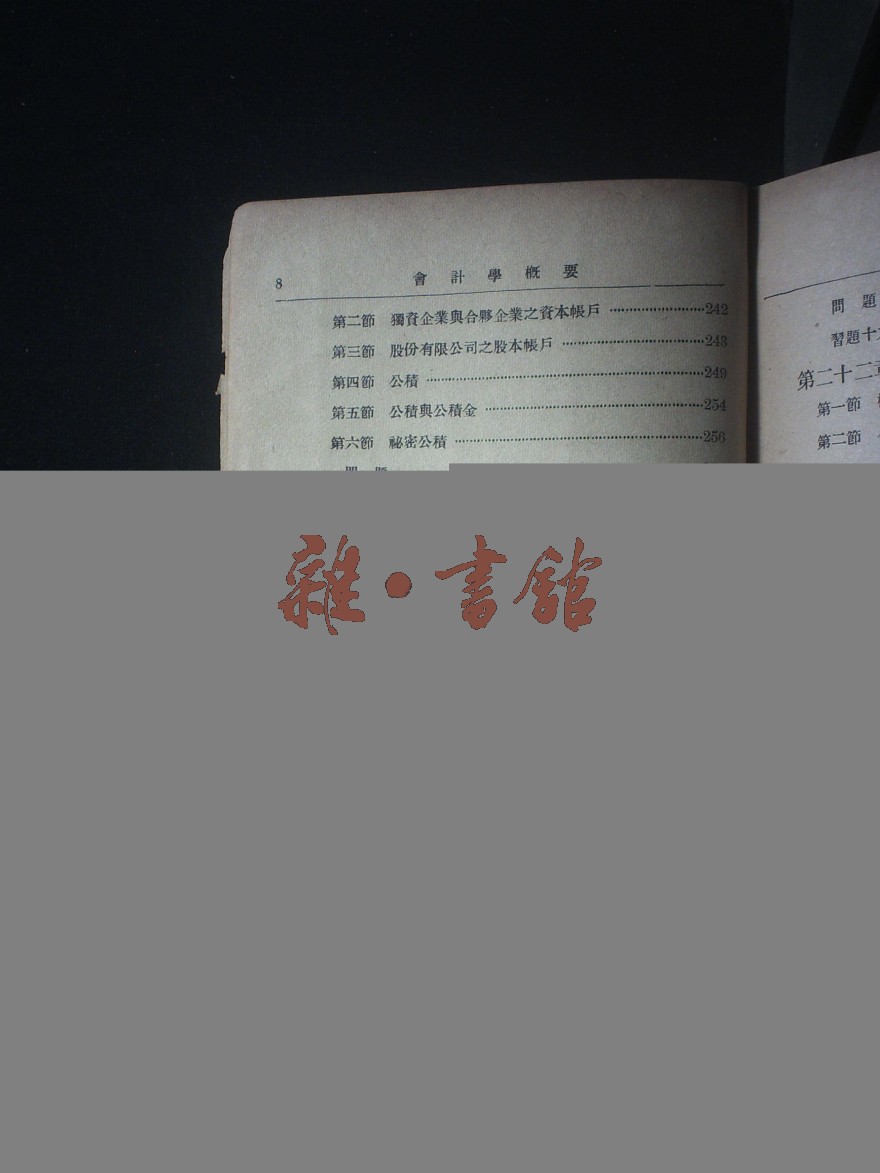 8 會計學概要
第二節 獨資企業與合夥企業之資本帳戶 242
第三節 股份有限公司之股本帳戶 243
第四節 公積 249
第五節 公積與公積金 254
第六節 祕密公積 256
問題
習題十
第二十二章
第一節
第二節
雜·書館